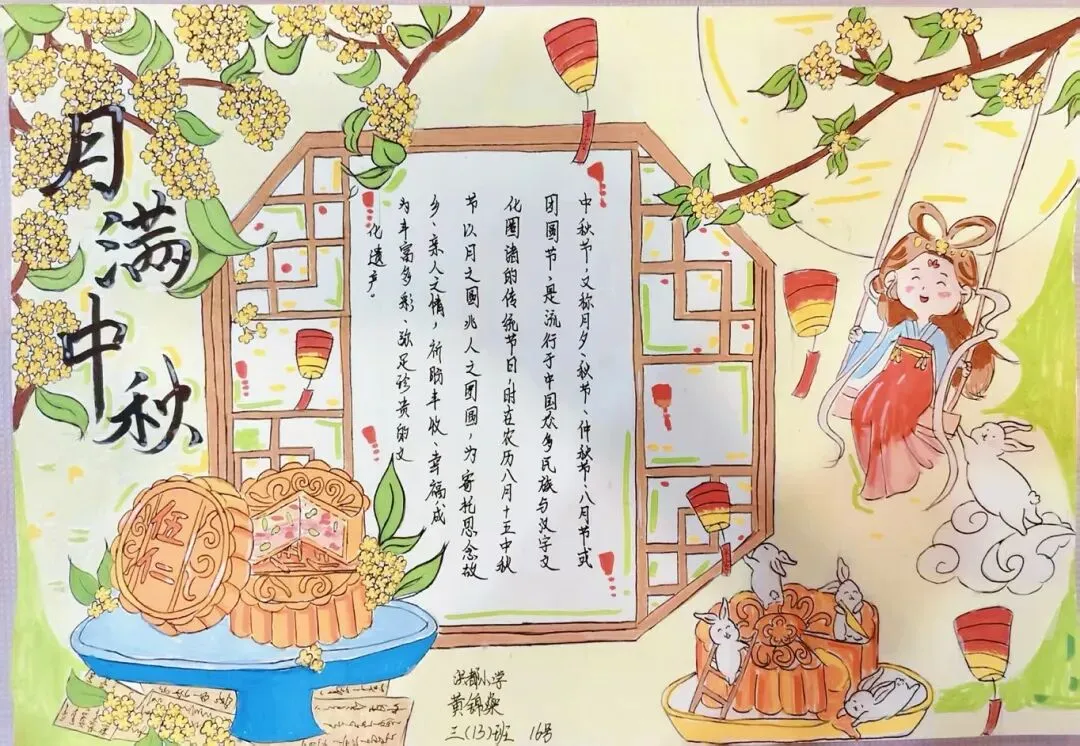 月满中秋
中秋节,又称月夕、秋节、仲秋节、八月节或
团圆节,是流行于中国众多民族与汉字文
化圈诸的传统节日,时在农历八月十五中秋
节以月之圆兆人之团圆,为寄托思念故
乡、亲人之情,祈盼丰收、幸福,成
为丰富多彩、弥足珍贵的文
化遗产。
伍仁
洪都小学
黄锦
三(13)班 16号